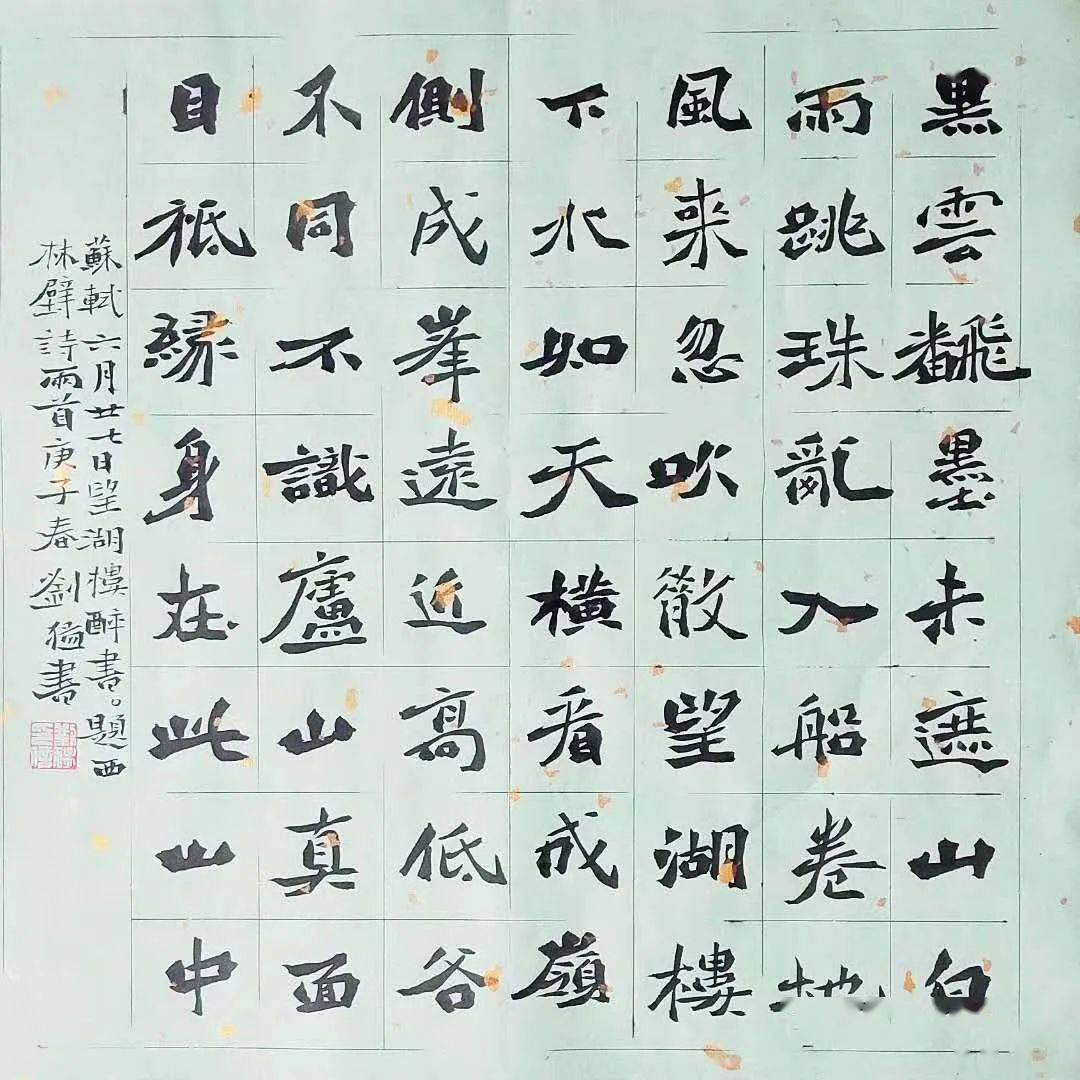 黑雲飜墨未遮山白
雨跳珠亂入船卷地
風来忽吹散望湖樓
下水如天橫看成嶺
側成峯遠近高低谷
不同不識廬山真面
目祗緣身在此山中
蘇軾六月廿七日望湖樓醉書。題西
林壁詩兩首庚子春劉書